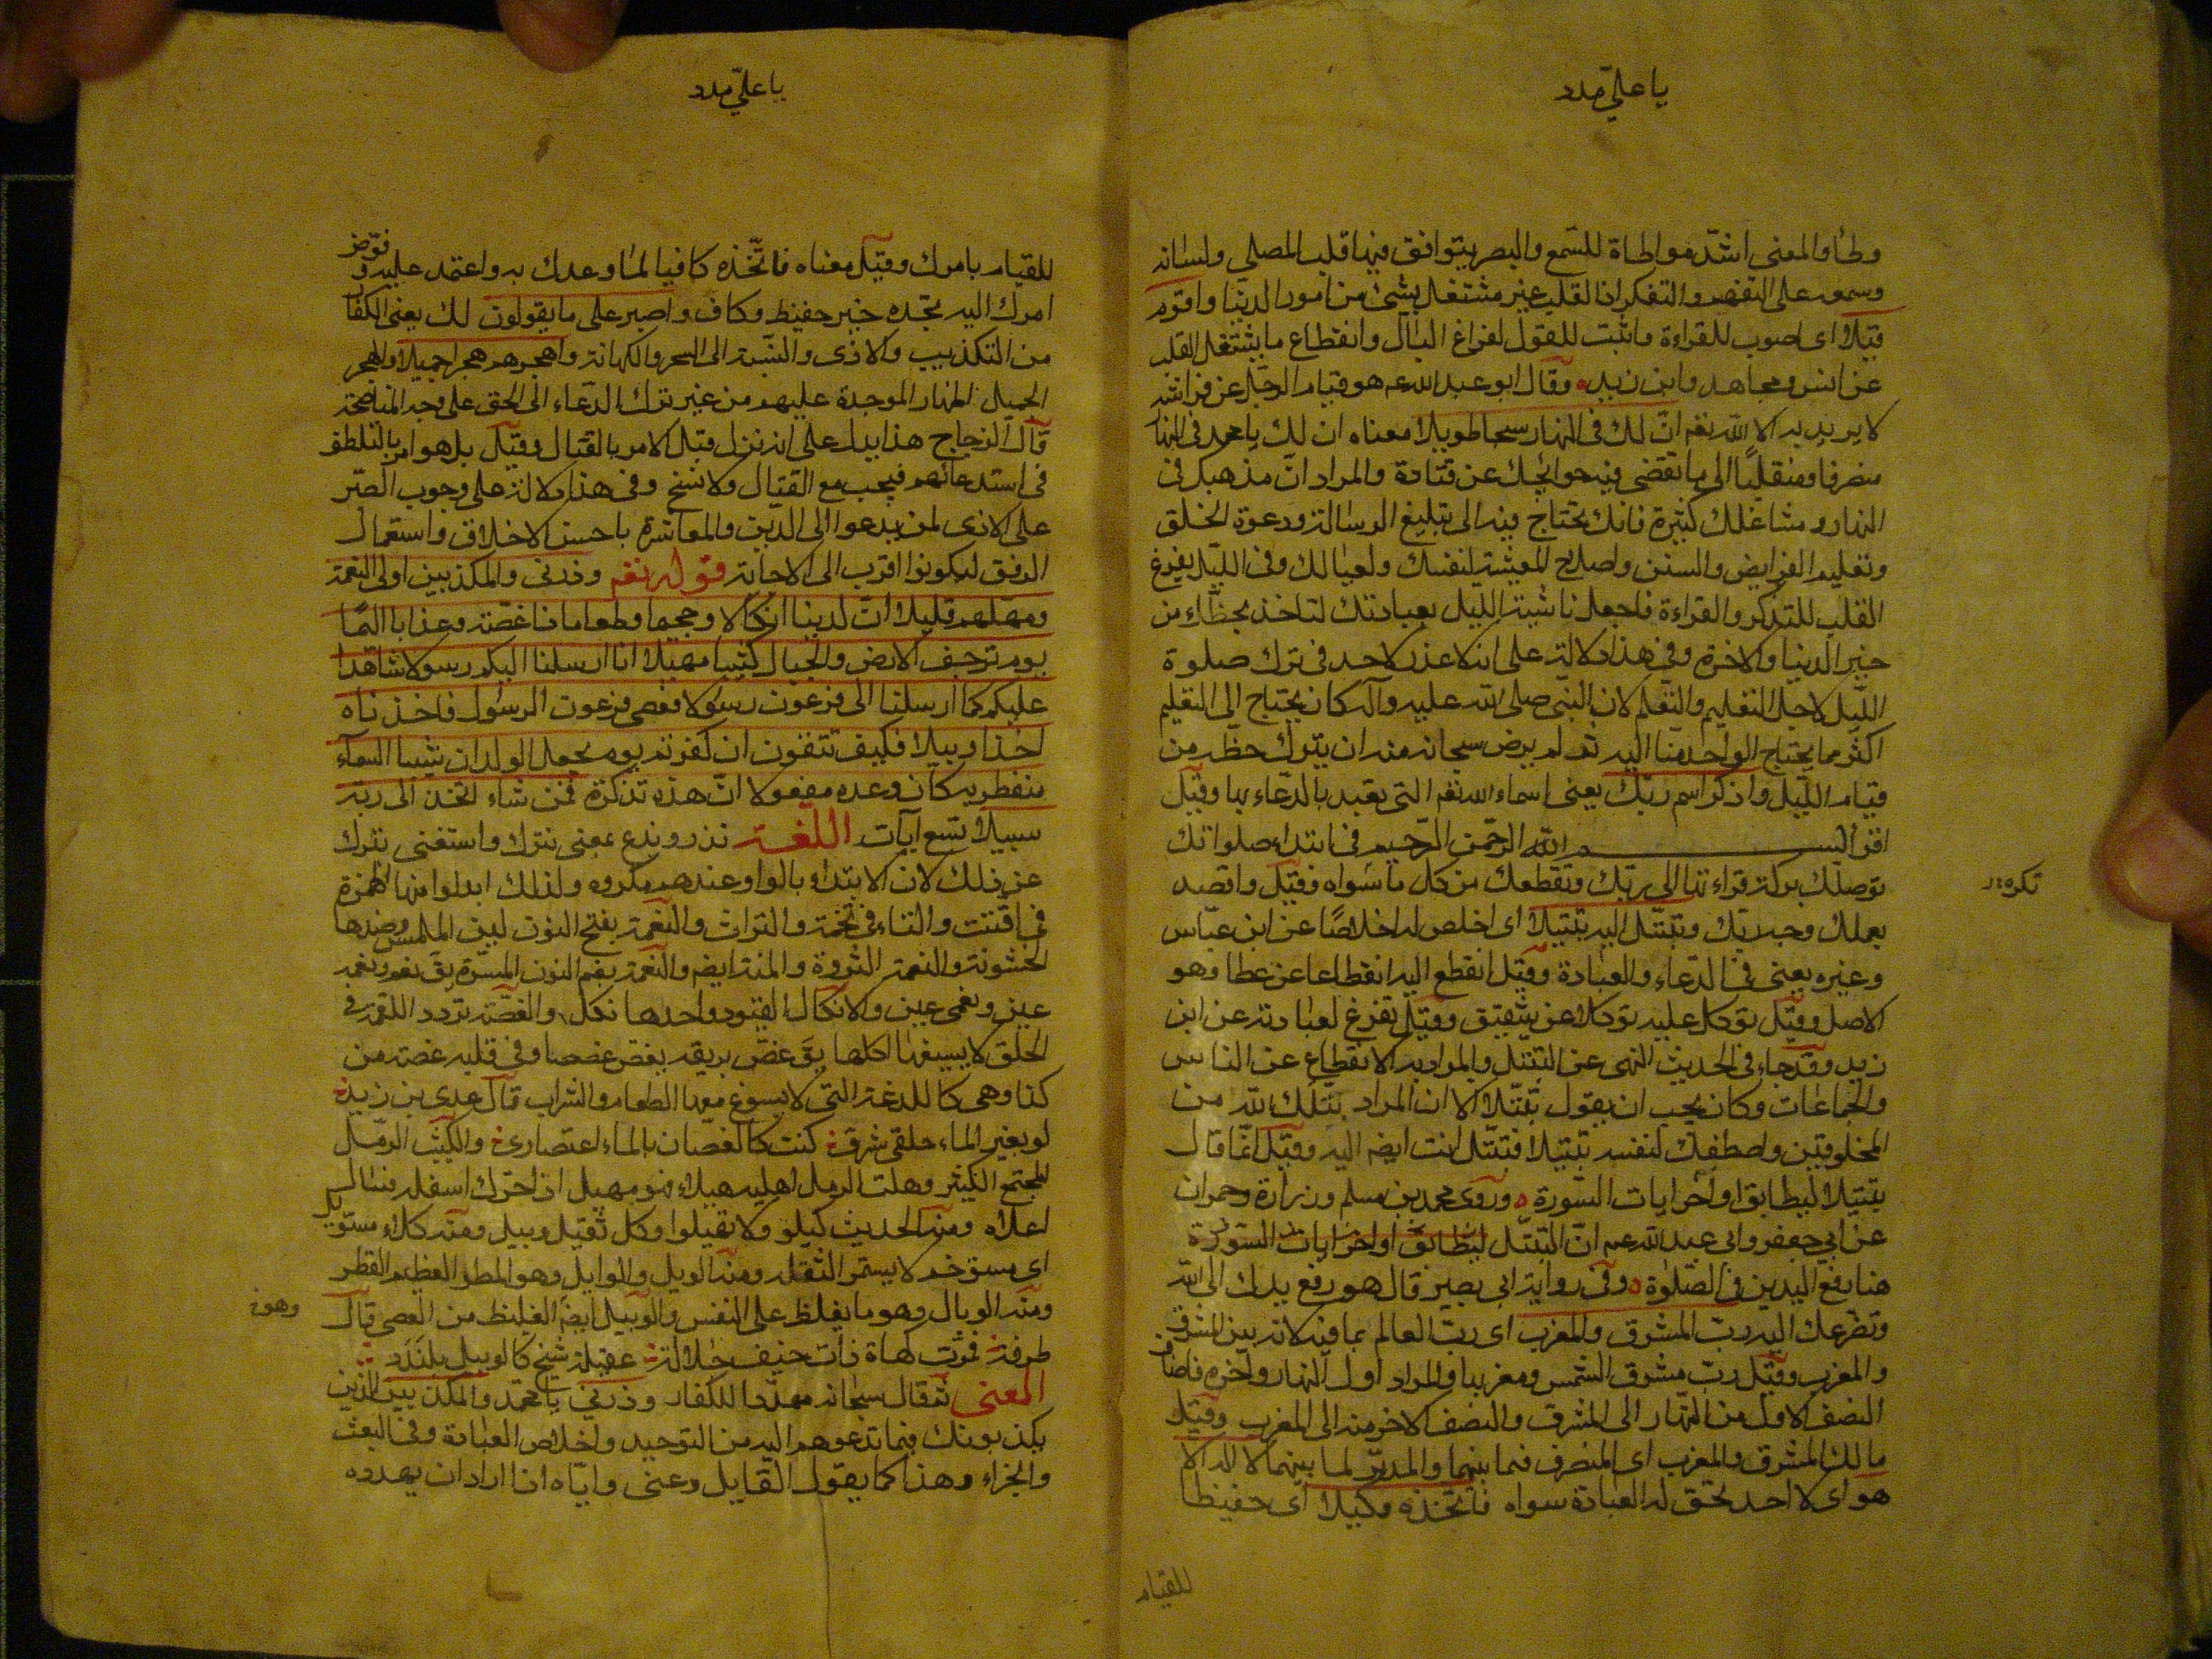 يا علي مدد
وطأ والمعنى اشدّ مواطاة للسّمع والبصر يتوافق فيها قلب المصلي ولسانه
وسمعه على التفهم والتفكر اذ القلب غير مشتغل بشئ من امور الدنيا واقوم
قيلا اى اصوب للقراءة واثبت للقول لفراغ البال وانقطاع ما يشتغل القلب
عن انس ومجاهد وابن زيد وقال ابو عبد الله عم هو قيام الرجل عن فراشه
لا يريد به الا الله تعم انّ لك فى النهار سبحا طويلا معناه ان لك يا محمد فى النها
منصرفا ومنقلبًا الى ما تقضى فيه حوائجك عن قتادة والمراد انّ مذهبك فى
النهار ومشاغلك كثيرة فانك تحتاج فيه الى تبليغ الرسالة ودعوة الخلق
وتعليم الفرايض والسنن واصلاح المعيشة لنفسك ولعيالك وفى الليل يفرغ
القلب للتذكر والقراءة فاجعل ناشئة الليل بعبادتك لتاخذ بحظّك من
خير الدنيا والاخرة وفى هذا دلالة على انه لا عذر لاحد فى ترك صلوة
اللّيل لاجل التعليم والتعلم لان النبّى صلى الله عليه وآله كان يحتاج الى التعليم
اكثر مما يحتاج الواحد منّا اليه ثم لم يرض سبحانه منه ان يترك حظه من
قيام اللّيل واذكر اسم ربّك يعنى اسماء الله تعم التى تعبد بالدّعاء بها وقيل
اقرأ بسم الله الرّحمن الرّحيم فى ابتداء صلواتك
توصلك بركة قراءتها الى ربّك وتقطعك من كل ما سواه وقيل واقصد
بعملك وجه ربّك وتبتّل اليه تبتيلا اى اخلص له اخلاصًا عن ابن عبّاس
وغيره يعنى فى الدّعاء والعبادة وقيل انقطع اليه انقطاعا عن عطا وهو
الاصل وقيل توكل عليه توكلا عن شقيق وقيل تفرغ لعبادته عن ابن
زيد وقد جاء فى الحديث النهى عن التبتّل والمراد به الانقطاع عن الناس
والجماعات وكان يجب ان يقول تبتّلا الا ان المراد بتّلك الله من
المخلوقين واصطفيك لنفسه تبتيلا فتبتّل انت ايضه اليه وقيل انّما قال
تبتيلا ليطابق اواخر ايات السّورة وروى محمد بن مسلم وزرارة وحمران
عن ابى جعفر وابى عبد الله عم انّ التبتّل ليطابق اواخر ايات السّورة
هنا رفع اليدين فى الصّلوة وفى رواية ابى بصير قال هو رفع يدك الى الله
وتضرعك اليه ربّ المشرق والمغرب اى ربّ العالم بما فيه لانه بين المشرق
والمغرب وقيل ربّ مشرق الشمس ومغربها والمراد اول النهار وآخره فاضاف
النصف الاول من النّهار الى المشرق والنصف الاخر منه الى المغرب وقيل
مالك المشرق والمغرب اى المتصرف فيما بينهما والمدبّر لما بينهما لا اله الا
هو اى لا احد تحق له العبادة سواه فاتّخذه وكيلا اى حفيظا
للقيام
يا علي مدد
للقيام بامرك وقيل معناه فاتّخذه كافيا لما وعدك به واعتمد عليه وفوّض
امرك اليه تجده خير حفيظ وكاف واصبر على ما يقولون لك يعنى الكفار
من التكذيب والاذى والنّسبة الى السحر والكهانة واهجرهم هجرا جميلا والهجر
الجميل اظهار الموجدة عليهم من غير ترك الدّعاء الى الحق على وجه المناصحة
قال الزجاج هذا يدل على انه نزل قبل الامر بالقتال وقيل بل هو امر بالتلطف
فى استدعائهم فيجب مع القتال ولا نسخ وفى هذا دلالة على وجوب الصّبر
على الاذى لمن يدعوا الى الدّين والمعاشرة باحسن الاخلاق واستعمال
الرفق ليكونوا اقرب الى الاجابة قوله تعم وذرنى والمكذبين اولى النعمة
ومهّلهم قليلا انّ لدينا انكالا وجحيما وطعاما ذا غصّة وعذابا اليمًا
يوم ترجف الارض والجبال كثيبا مهيلا انا ارسلنا اليكم رسولا شاهدا
عليكم كما ارسلنا الى فرعون رسولا فعصى فرعون الرسول فاخذناه
اخذا وبيلا فكيف تتقون ان كفرتم يوم يجعل الولدان شيبا السماء
منفطر به كان وعده مفعولا انّ هذه تذكرة فمن شاء اتخذ الى ربّه
سبيلا تسع ايآت اللّغة نذر وندع بمعنى نترك واستغنى بترك
عن ذلك لان الابتداء بالواو عندهم مكروه ولذلك ابدلوا منها الهمزة
فى اقّتت والتاء فى تخمة والتراث والنّعمة بفتح النون لين الملمس وضدها
الخشونة والنعمة الثروة والمنة ايضه والنّعمة بضم النون المسّرة يق نعم ونعمة
عين ونعمى عين والانكال القيود واحدها نكل والغصّة تردد اللقمة فى
الحلق لا يسيغها اكلها يق غصّ بريقه يغص غصصا وفى قلبه غصة من
كذا وهى كاللدغة التى لا يسوغ معها الطعام والشراب قال عدى بن زيد
لو بغير الماء حلقى شرق كنت كالغصّان بالماء اعتصارى والكثيب الرمّل
المجتمع الكثير وهلت الرمل اهيله هيلا فهو مهيل اذا حرك اسفله فسال
اعلاه ومنه الحديث كيلو ولا تهيلوا وكل ثقيل وبيل ومنه كلاء مستوبل
اى مستوخم لا يستمرا لثقله ومنه الوبل والوابل وهو المطر العظيم القطر
ومنه الوبال وهو ما يغلظ على النفس والوبيل ايضه الغليظ من العصى قال
طرفة فمرّت كهاة ذات خيف جلالة عقيلة شيخ كالوبيل يلندد
المعنى ثم قال سبحانه مهدّدا للكفار وذرنى يا محمّد والمكذبين الذين
يكذبونك فيما تدعوهم اليه من التوحيد واخلاص العبادة وفى البعث
والجزاء وهذا كما يقول القايل دعنى وايّاه اذا اراد ان يهدده